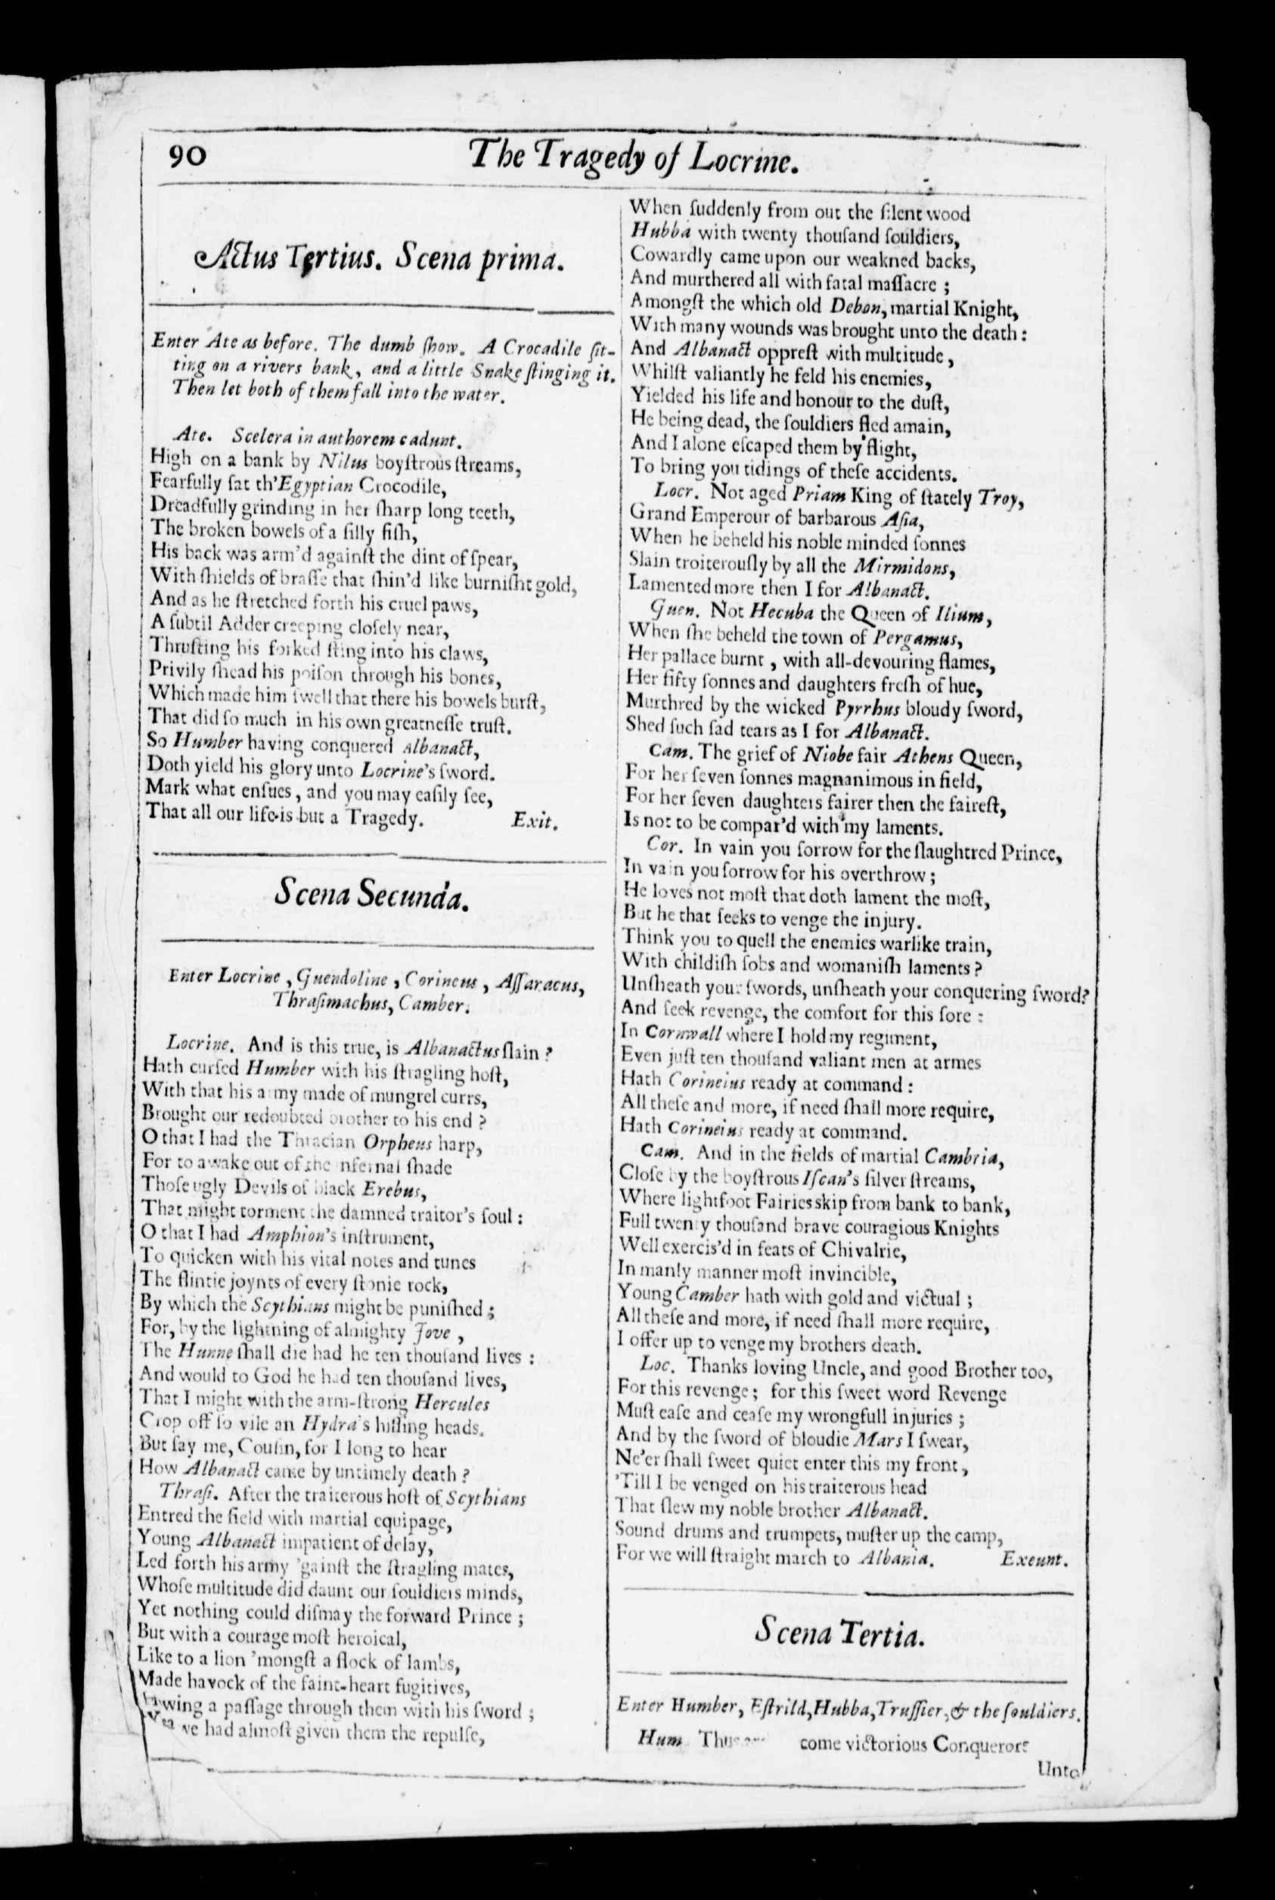 90
The Tragedy of Locrine.
Actus Tertius. Scena prima.
Enter Ate as before. The dumb ſhow. A Crocadile ſit-
ting on a rivers bank, and a little Snake ſtinging it.
Then let both of them fall into the water.
Ate. Scelera in authorem cadunt.
High on a bank by Nilus boyſtrous ſtreams,
Fearfully ſat th'Egyptian Crocodile,
Dreadfully grinding in her ſharp long teeth,
The broken bowels of a ſilly fiſh,
His back was arm'd againſt the dint of ſpear,
With ſhields of braſſe that ſhin'd like burniſht gold,
And as he ſtretched forth his cruel paws,
A ſubtil Adder creeping cloſely near,
Thruſting his forked ſting into his claws,
Privily ſhead his poiſon through his bones,
Which made him ſwell that there his bowels burſt,
That did ſo much in his own greatneſſe truſt.
So Humber having conquered Albanact,
Doth yield his glory unto Locrine's ſword.
Mark what enſues, and you may eaſily ſee,
That all our life is but a Tragedy. Exit.
Scena Secunda.
Enter Locrine, Guendoline, Corineus, Aſſaracus,
Thraſimachus, Camber.
Locrine. And is this true, is Albanactus ſlain?
Hath curſed Humber with his ſtragling hoſt,
With that his army made of mungrel currs,
Brought our redoubted brother to his end?
O that I had the Thracian Orpheus harp,
For to awake out of the infernal ſhade
Thoſe ugly Devils of black Erebus,
That might torment the damned traitor's ſoul:
O that I had Amphion's inſtrument,
To quicken with his vital notes and tunes
The flintie joynts of every ſtonie rock,
By which the Scythians might be puniſhed;
For, by the lightning of almighty Jove,
The Hunne ſhall die had he ten thouſand lives:
And would to God he had ten thouſand lives,
That I might with the arm-ſtrong Hercules
Crop off ſo vile an Hydra's hiſſing heads.
But ſay me, Couſin, for I long to hear
How Albanact came by untimely death?
Thraſi. After the traiterous hoſt of Scythians
Entred the field with martial equipage,
Young Albanact impatient of delay,
Led forth his army 'gainſt the ſtragling mates,
Whoſe multitude did daunt our ſouldiers minds,
Yet nothing could diſmay the forward Prince;
But with a courage moſt heroical,
Like to a lion 'mongſt a flock of lambs,
Made havock of the faint-heart fugitives,
Hewing a paſſage through them with his ſword;
Yea we had almoſt given them the repulſe,
When ſuddenly from out the ſilent wood
Hubba with twenty thouſand ſouldiers,
Cowardly came upon our weakned backs,
And murthered all with fatal maſſacre;
Amongſt the which old Debon, martial Knight,
With many wounds was brought unto the death:
And Albanact oppreſt with multitude,
Whilſt valiantly he feld his enemies,
Yielded his life and honour to the duſt,
He being dead, the ſouldiers fled amain,
And I alone eſcaped them by flight,
To bring you tidings of theſe accidents.
Locr. Not aged Priam King of ſtately Troy,
Grand Emperour of barbarous Aſia,
When he beheld his noble minded ſonnes
Slain troiterouſly by all the Mirmidons,
Lamented more then I for Albanact.
Guen. Not Hecuba the Queen of Ilium,
When ſhe beheld the town of Pergamus,
Her pallace burnt, with all-devouring flames,
Her fifty ſonnes and daughters freſh of hue,
Murthred by the wicked Pyrrhus bloudy ſword,
Shed ſuch ſad tears as I for Albanact.
Cam. The grief of Niobe fair Athens Queen,
For her ſeven ſonnes magnanimous in field,
For her ſeven daughters fairer then the faireſt,
Is not to be compar'd with my laments.
Cor. In vain you ſorrow for the ſlaughtred Prince,
In vain you ſorrow for his overthrow;
He loves not moſt that doth lament the moſt,
But he that ſeeks to venge the injury.
Think you to quell the enemies warlike train,
With childiſh ſobs and womaniſh laments?
Unſheath your ſwords, unſheath your conquering ſword?
And ſeek revenge, the comfort for this ſore:
In Cornwall where I hold my regiment,
Even juſt ten thouſand valiant men at armes
Hath Corineius ready at command:
All theſe and more, if need ſhall more require,
Hath Corineius ready at command.
Cam. And in the fields of martial Cambria,
Cloſe by the boyſtrous Iſcan's ſilver ſtreams,
Where lightfoot Fairies skip from bank to bank,
Full twenty thouſand brave couragious Knights
Well exercis'd in feats of Chivalrie,
In manly manner moſt invincible,
Young Camber hath with gold and victual;
All theſe and more, if need ſhall more require,
I offer up to venge my brothers death.
Loc. Thanks loving Uncle, and good Brother too,
For this revenge; for this ſweet word Revenge
Muſt eaſe and ceaſe my wrongfull injuries;
And by the ſword of bloudie Mars I ſwear,
Ne'er ſhall ſweet quiet enter this my front,
'Till I be venged on his traiterous head
That ſlew my noble brother Albanact.
Sound drums and trumpets, muſter up the camp,
For we will ſtraight march to Albania. Exeunt.
Scena Tertia.
Enter Humber, Eſtrild, Hubba, Truſſier, & the ſouldiers.
Hum. Thus come victorious Conquerors
Unto